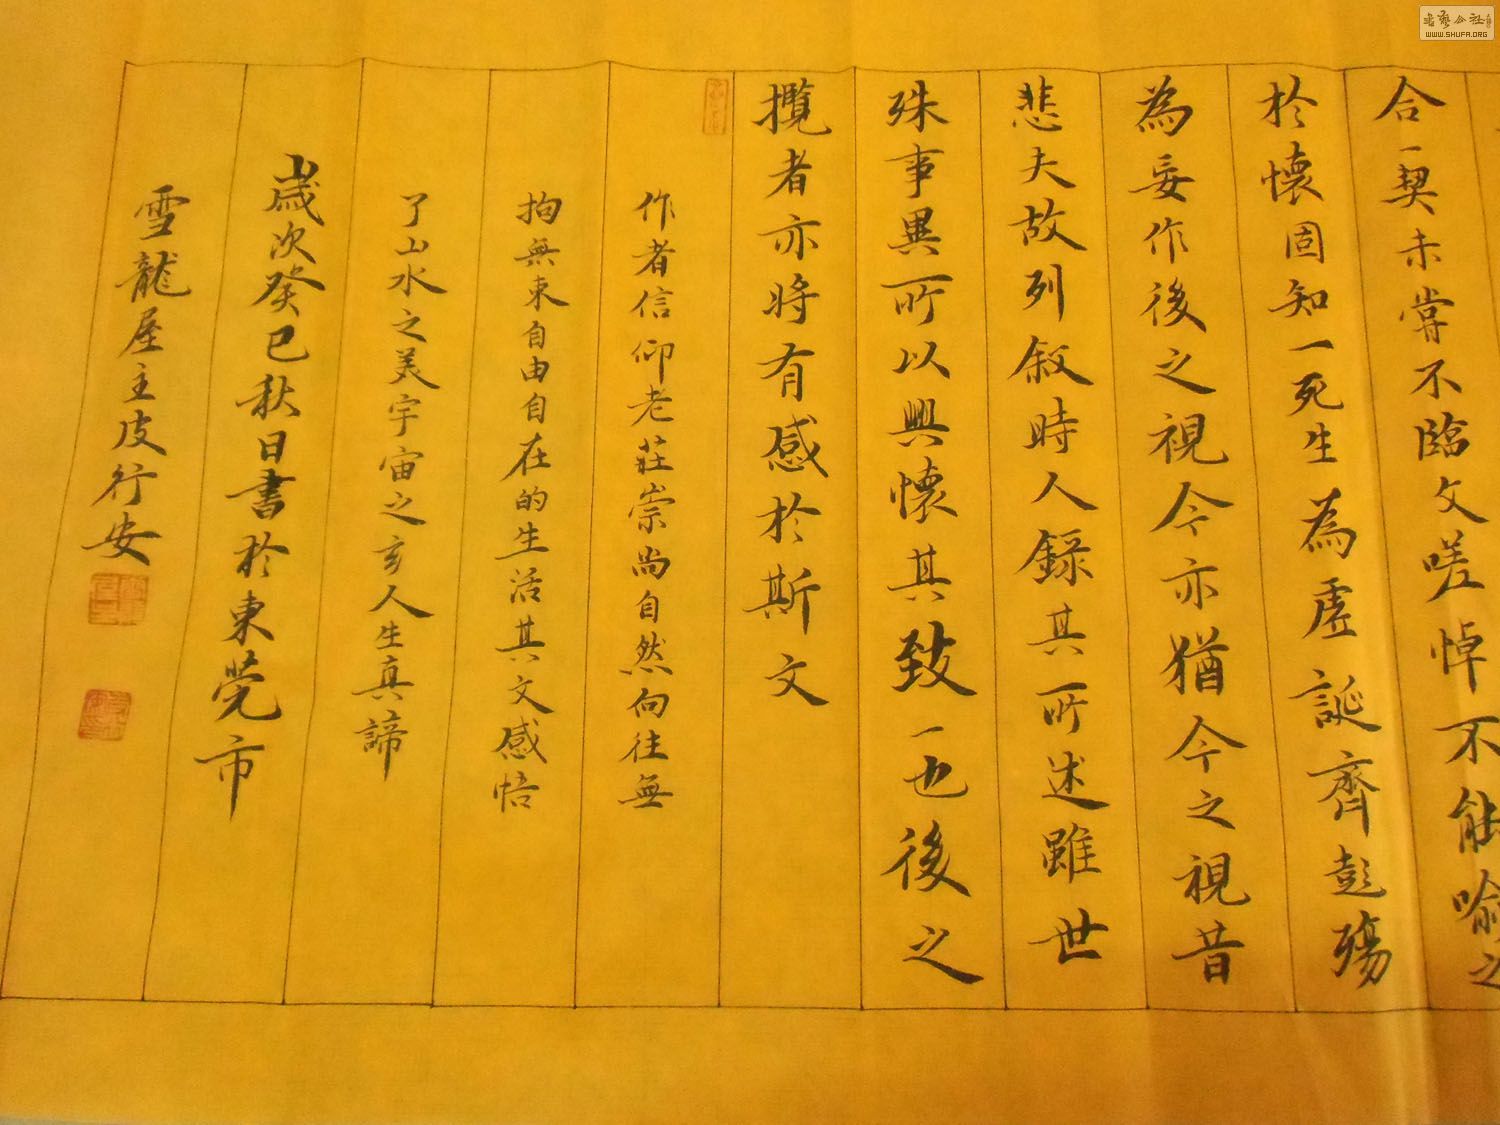 合一契未嘗不臨文嗟悼不能喻之
於懷固知一死生為虛誕齊彭殤
為妄作後之視今亦猶今之視昔
悲夫故列敘時人錄其所述雖世
殊事異所以興懷其致一也後之
攬者亦將有感於斯文
作者信仰老莊崇尚自然向往無
拘無束自由自在的生活其文感悟
了山水之美宇宙之亥人生真諦
歲次癸巳秋日書於東莞市
雪龍屋主皮行安
書藝公社
WWW.SHUFA.ORG